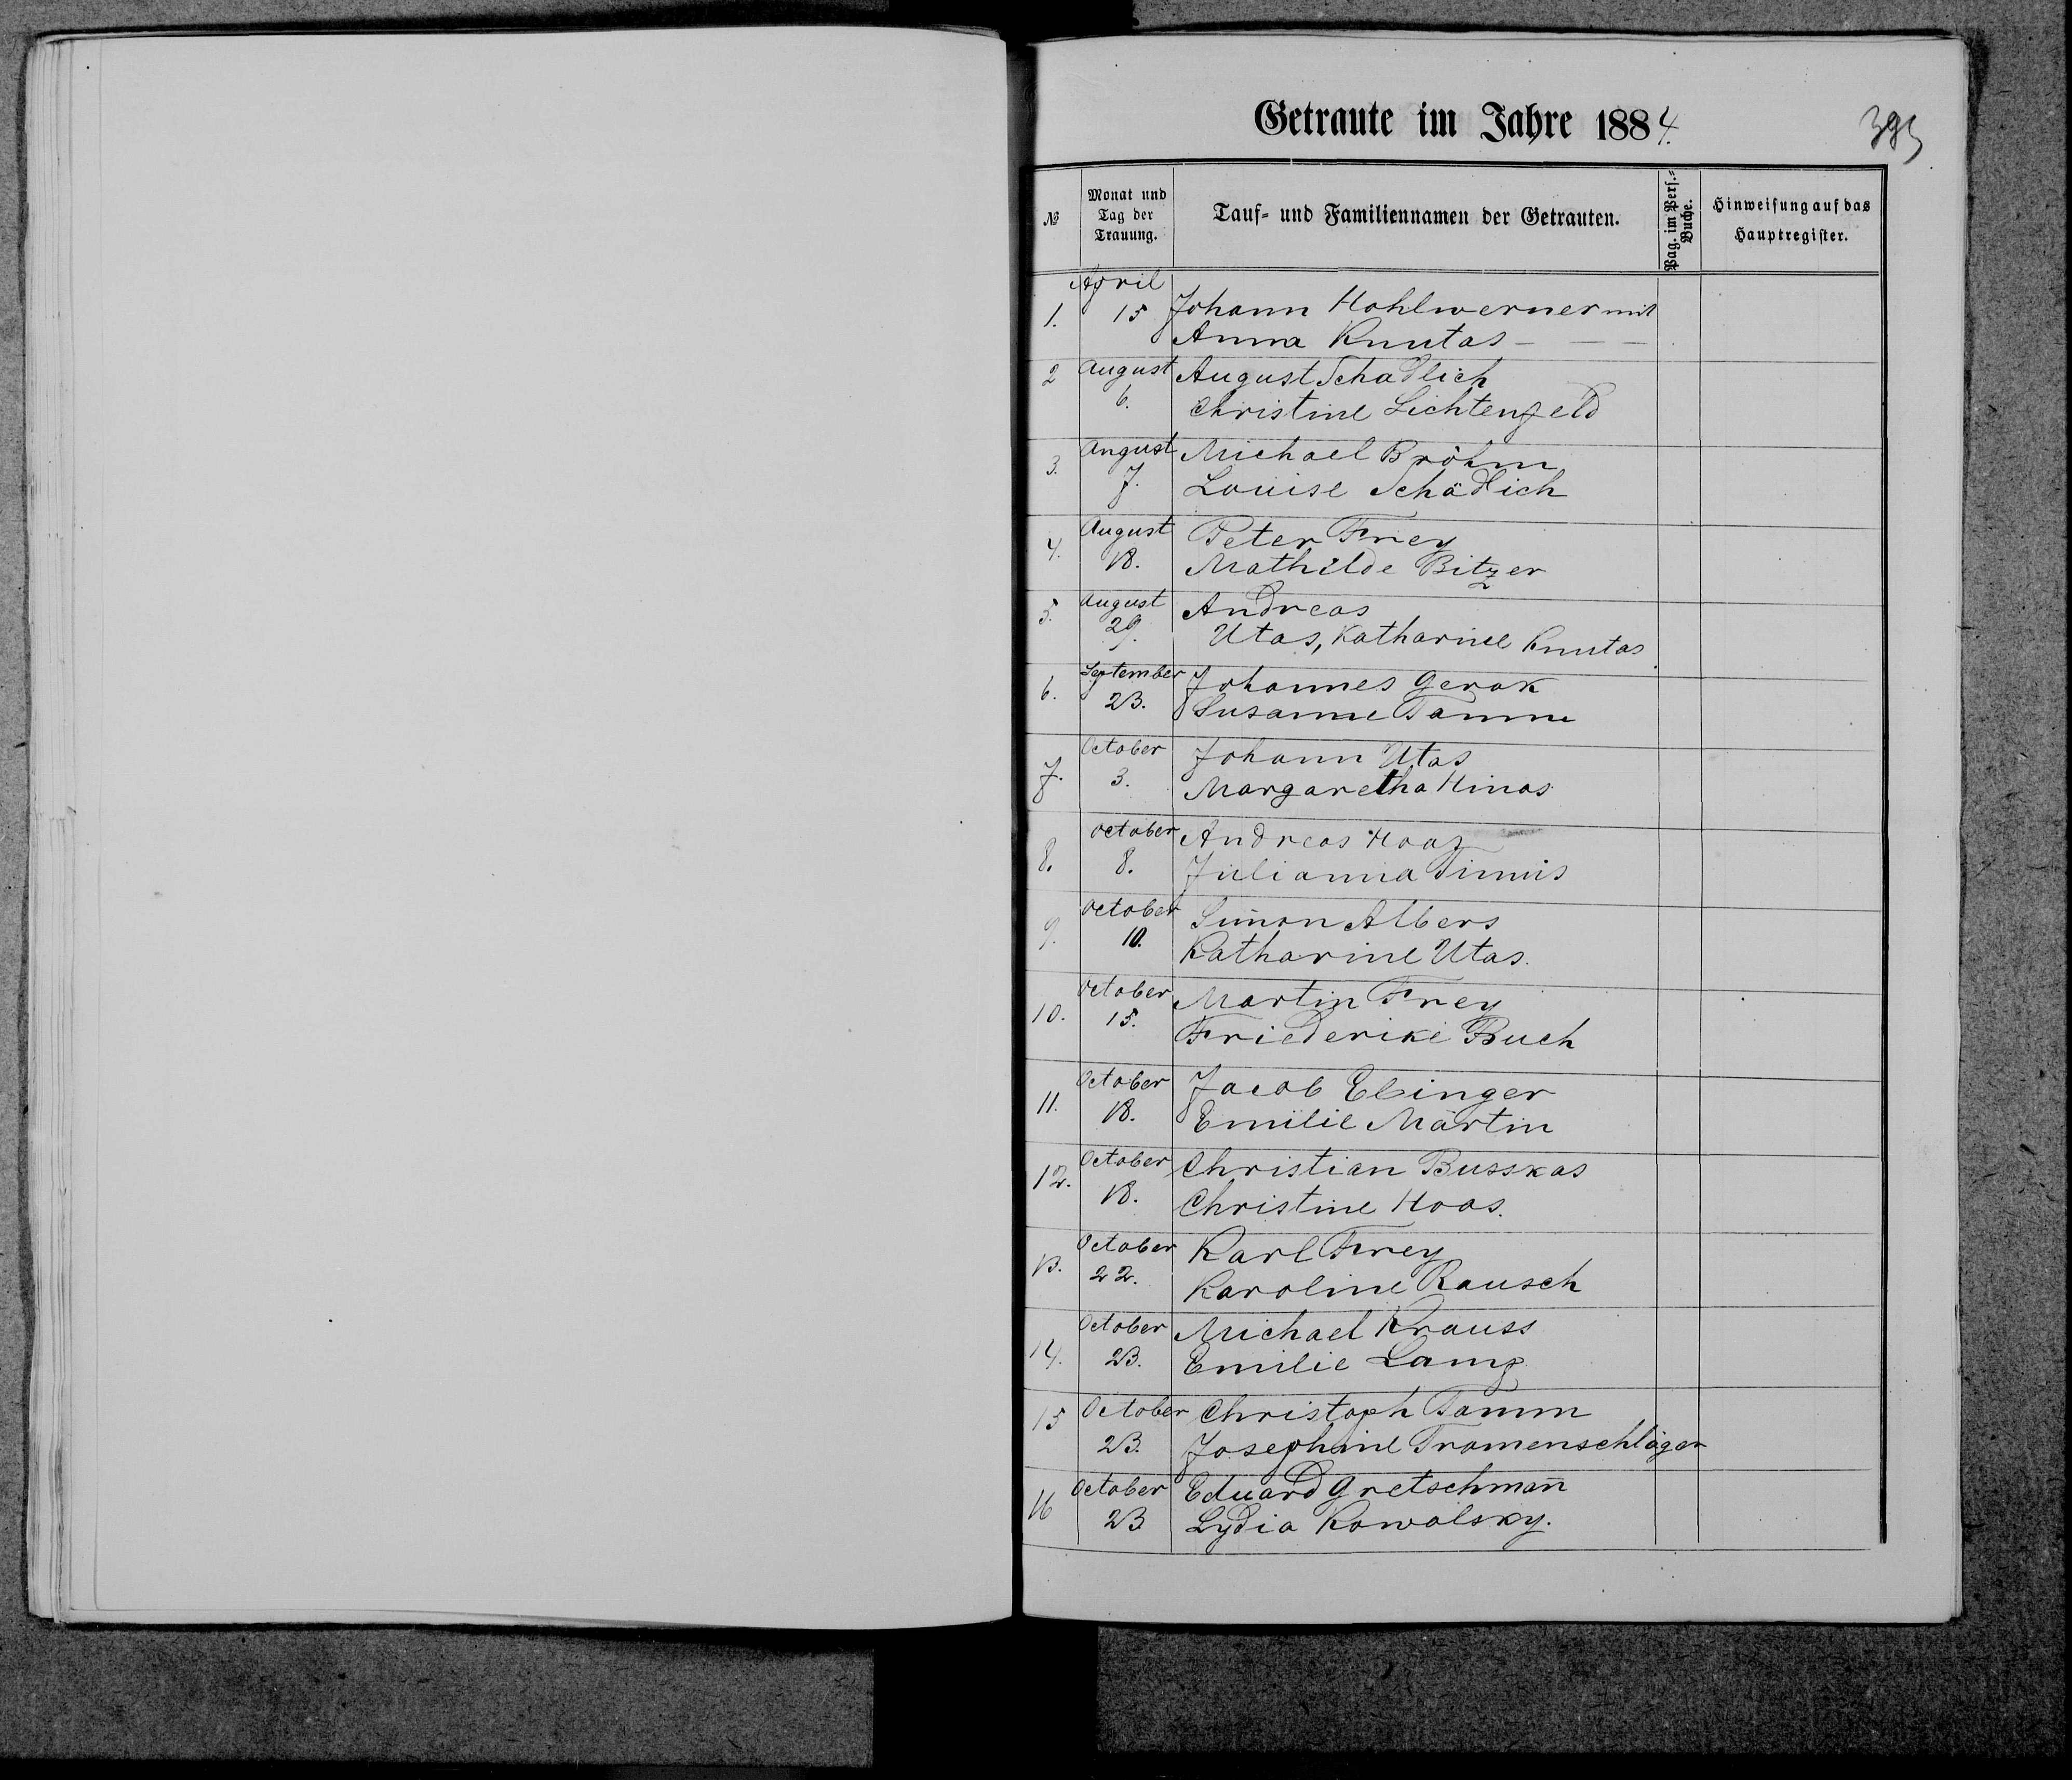 Getraute im Jahre 1884.
№
Monat und Tag der Trauung.
Tauf- und Familiennamen der Getrauten.
Pag. im Pers.-Buche.
Hinweisung auf das Hauptregister.
1. April 15 Johann Hohlwerner mit
Anna Knutas
2 August 6. August Schadlich
Christine Lichtenfeld
3. August 7. Michael Bröhm
Louise Schädlich
4. August 18. Peter Frey
Mathilde Bitzer
5. August 29. Andreas
Utas, Katharine Knutas
6. September 23. Johannes Gerak
Susanne Tamm
7. October 3. Johann Utas
Margaretha Hinas
8. October 8. Andreas Hoas
Julianna Timmis
9. October 10. Simon Albers
Katharine Utas.
10. October 15. Martin Frey
Friederike Buch
11. October 18. Jacob Ebinger
Emilie Märtin
12. October 18. Christian Busskas
Christine Hoas.
13. October 22. Karl Frey
Karoline Rausch
14. October 23. Michael Krauss
Emilie Lang
15 October 23. Christoph Tamm
Josephine Tromenschläger
16 October 23 Eduard Gretschman̄
Lydia Kowalsky.